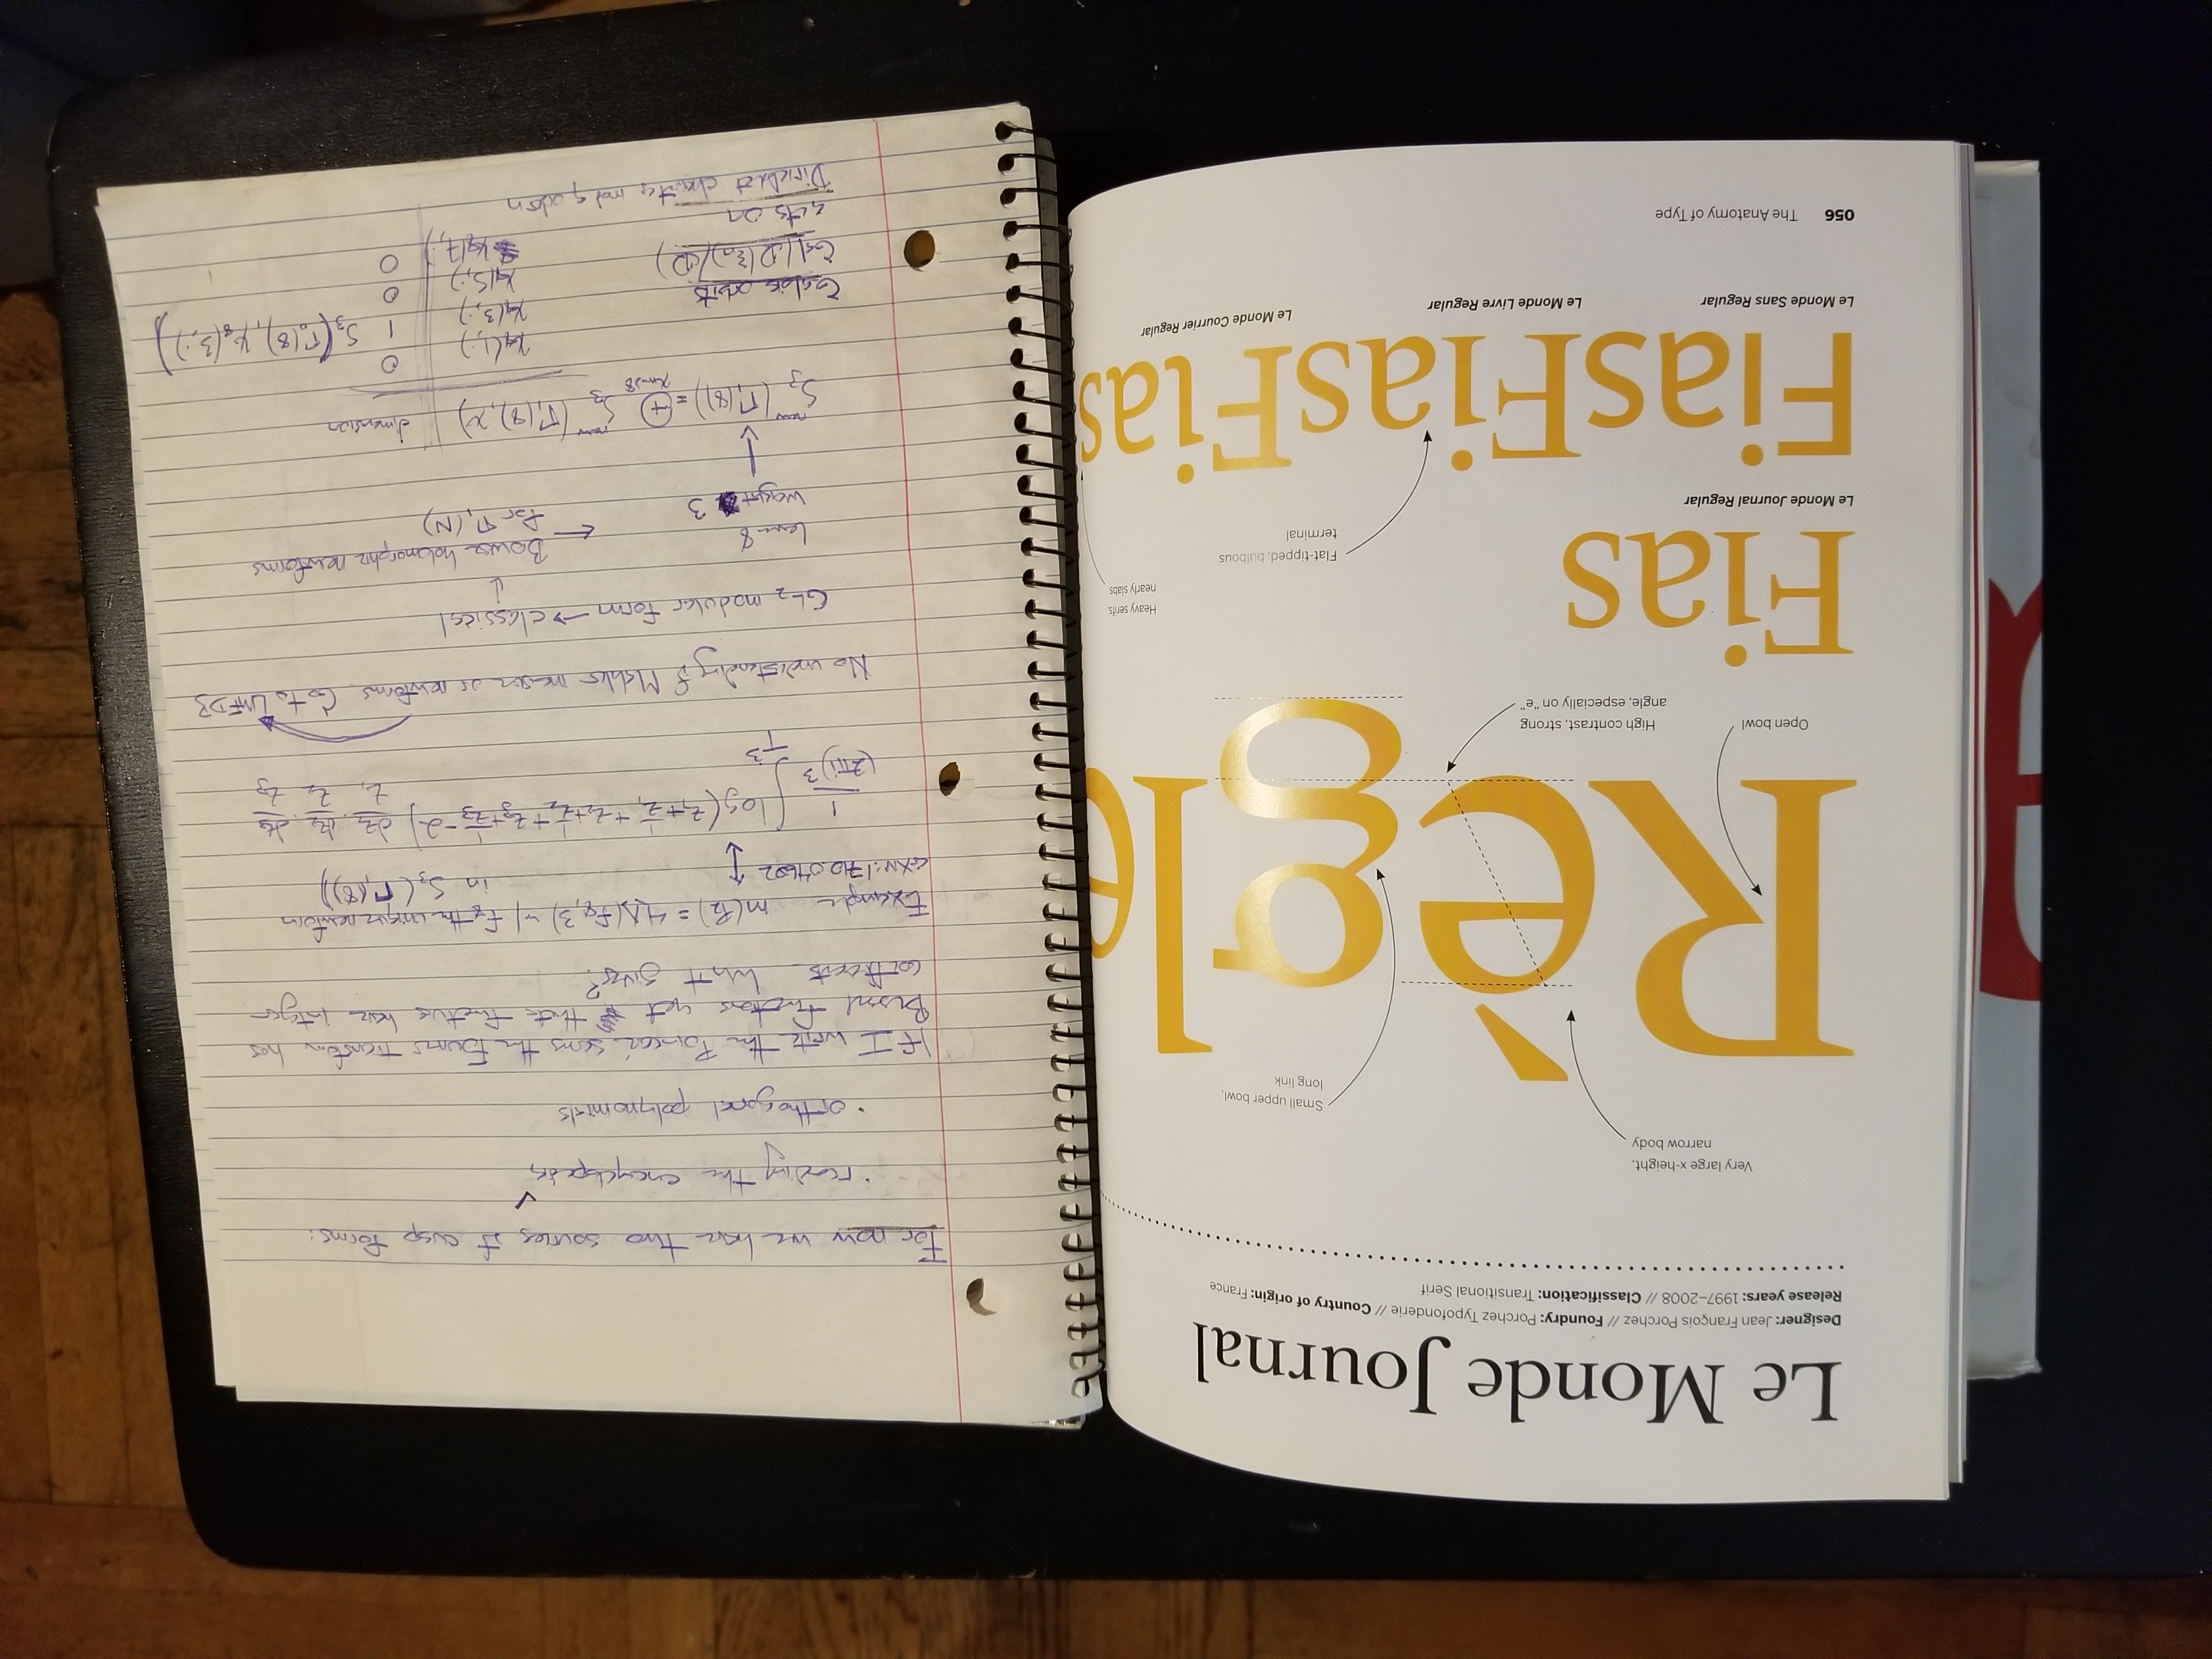 Le Monde Journal
Designer: Jean François Porchez // Foundry: Porchez Typofonderie // Country of origin: France
Release years: 1997–2008 // Classification: Transitional Serif
Very large x-height,
narrow body
Small upper bowl,
long link
Règle
Open bowl
High contrast, strong
angle, especially on "e"
Fias
Le Monde Journal Regular
Flat-tipped, bulbous
terminal
Heavy serifs,
nearly slabs
FiasFiasFias
Le Monde Sans Regular
Le Monde Livre Regular
Le Monde Courrier Regular
056 The Anatomy of Type
For now we have two sources of cusp forms:
· reading the encyclopedia ✓
· orthogonal polynomials
If I write the Poincaré series the Fourier transform has
Bessel functions yet that function have integer
coefficients. What gives?
Example m(P₂) = 4Λ(f₈,3) ~ f₈ the unique newform
arXiv:1710.04602 in S₃(Γ₁(8))
1/(2πi)³ ∫ log(z₁+1/z₁+z₂+1/z₂+z₃+1/z₃-2) dz₁/z₁ dz₂/z₂ dz₃/z₃
T³
No understanding of Mahler measure or newforms. Go to LMFDB
GL₂ modular form → classical
level 8 ← Browse holomorphic newforms
weight 3 for Γ₁(N)
S₃ⁿᵉʷ(Γ₁(8)) = ⊕ S₃ⁿᵉʷ(Γ₁(8),χ) dimension
χ₈(1,·) 0
Galois orbits χ₈(3,·) 1 S₃(Γ₀(8), χ₈(3,·))
χ₈(5,·) 0
χ₈(7,·) 0
acts on
Dirichlet characters mod